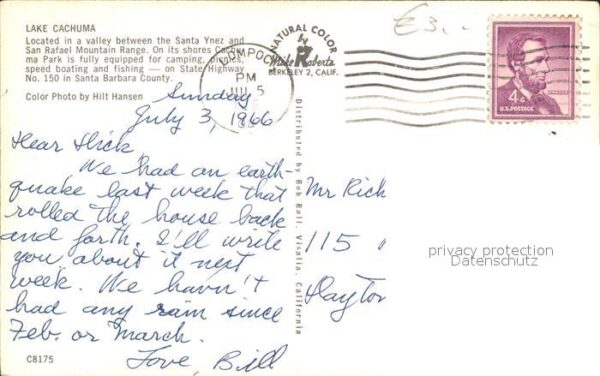 LAKE CACHUMA
Located in a valley between the Santa Ynez and
San Rafael Mountain Range. On its shores Cachu-
ma Park is fully equipped for camping, picnics,
speed boating and fishing — on State Highway
No. 150 in Santa Barbara County.
Color Photo by Hilt Hansen
LOMPOC
PM
JUL 5
NATURAL COLOR
Mike Roberts
BERKELEY 2, CALIF.
£3.-
4¢
U.S. POSTAGE
Sunday
July 3, 1966
Dear Hick,
We had an earth-
quake last week that
rolled the house back
and forth. I'll write
you about it next
week. We havn't
had any rain since
Feb. or March.
Love, Bill
Distributed by Bob Ball, Visalia, California
Mr Rick
115
Dayton
privacy protection
Datenschutz
C8175